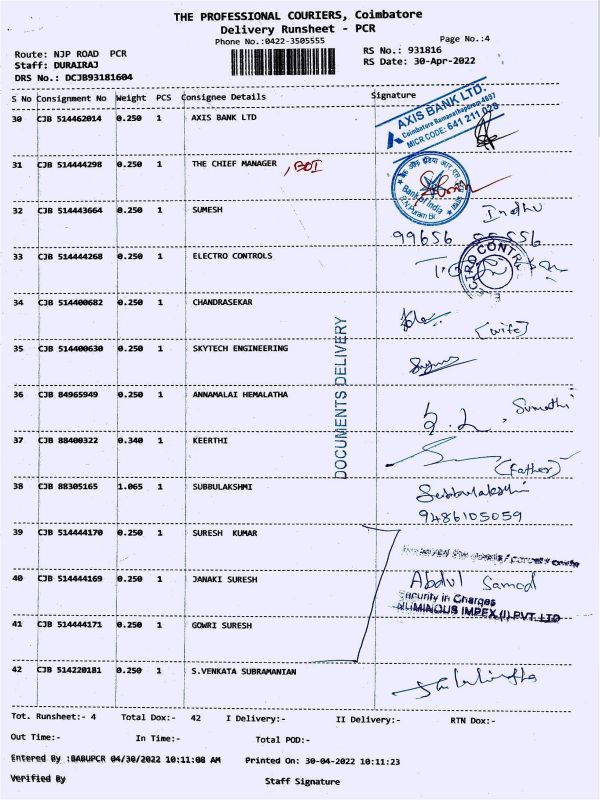 THE PROFESSIONAL COURIERS, Coimbatore
Delivery Runsheet - PCR
Phone No.:0422-3505555
Page No.:4
Route: NJP ROAD PCR
RS No.: 931816
Staff: DURAIRAJ
RS Date: 30-Apr-2022
DRS No.: DCJB93181604
S No Consignment No Weight PCS Consignee Details Signature
30 CJB 514462014 0.250 1 AXIS BANK LTD
AXIS BANK LTD.
Coimbatore Ramanathapuram
MICR CODE: 641 211 028
31 CJB 514444298 0.250 1 THE CHIEF MANAGER , BOI
Bank of India
32 CJB 514443664 0.250 1 SUMESH
Indhu
99656 55556
33 CJB 514444268 0.250 1 ELECTRO CONTROLS
34 CJB 514400682 0.250 1 CHANDRASEKAR
(wife)
35 CJB 514400630 0.250 1 SKYTECH ENGINEERING
DOCUMENTS DELIVERY
36 CJB 84965949 0.250 1 ANNAMALAI HEMALATHA
Sumathi
37 CJB 88400322 0.340 1 KEERTHI
(Father)
38 CJB 88305165 1.065 1 SUBBULAKSHMI
Subbulakshmi
9486105059
39 CJB 514444170 0.250 1 SURESH KUMAR
40 CJB 514444169 0.250 1 JANAKI SURESH
Abdul Samad
Security in Charges
LUMINOUS IMPEX (I) PVT. LTD
41 CJB 514444171 0.250 1 GOWRI SURESH
42 CJB 514220181 0.250 1 S.VENKATA SUBRAMANIAN
Tot. Runsheet:- 4 Total Dox:- 42 I Delivery:- II Delivery:- RTN Dox:-
Out Time:- In Time:- Total POD:-
Entered By :BABUPCR 04/30/2022 10:11:08 AM Printed On: 30-04-2022 10:11:23
Verified By
Staff Signature